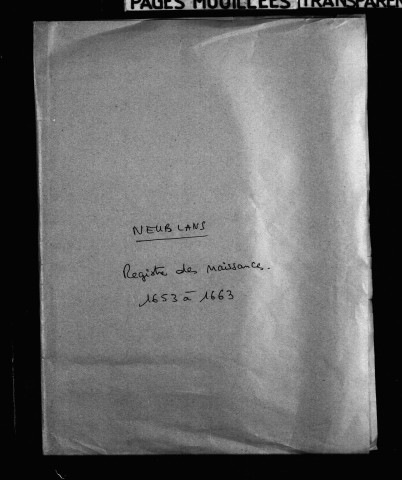 PAGES MOUILLÉES (TRANSPAREN
NEUBLANS
Registre des naissances.
1653 à 1663